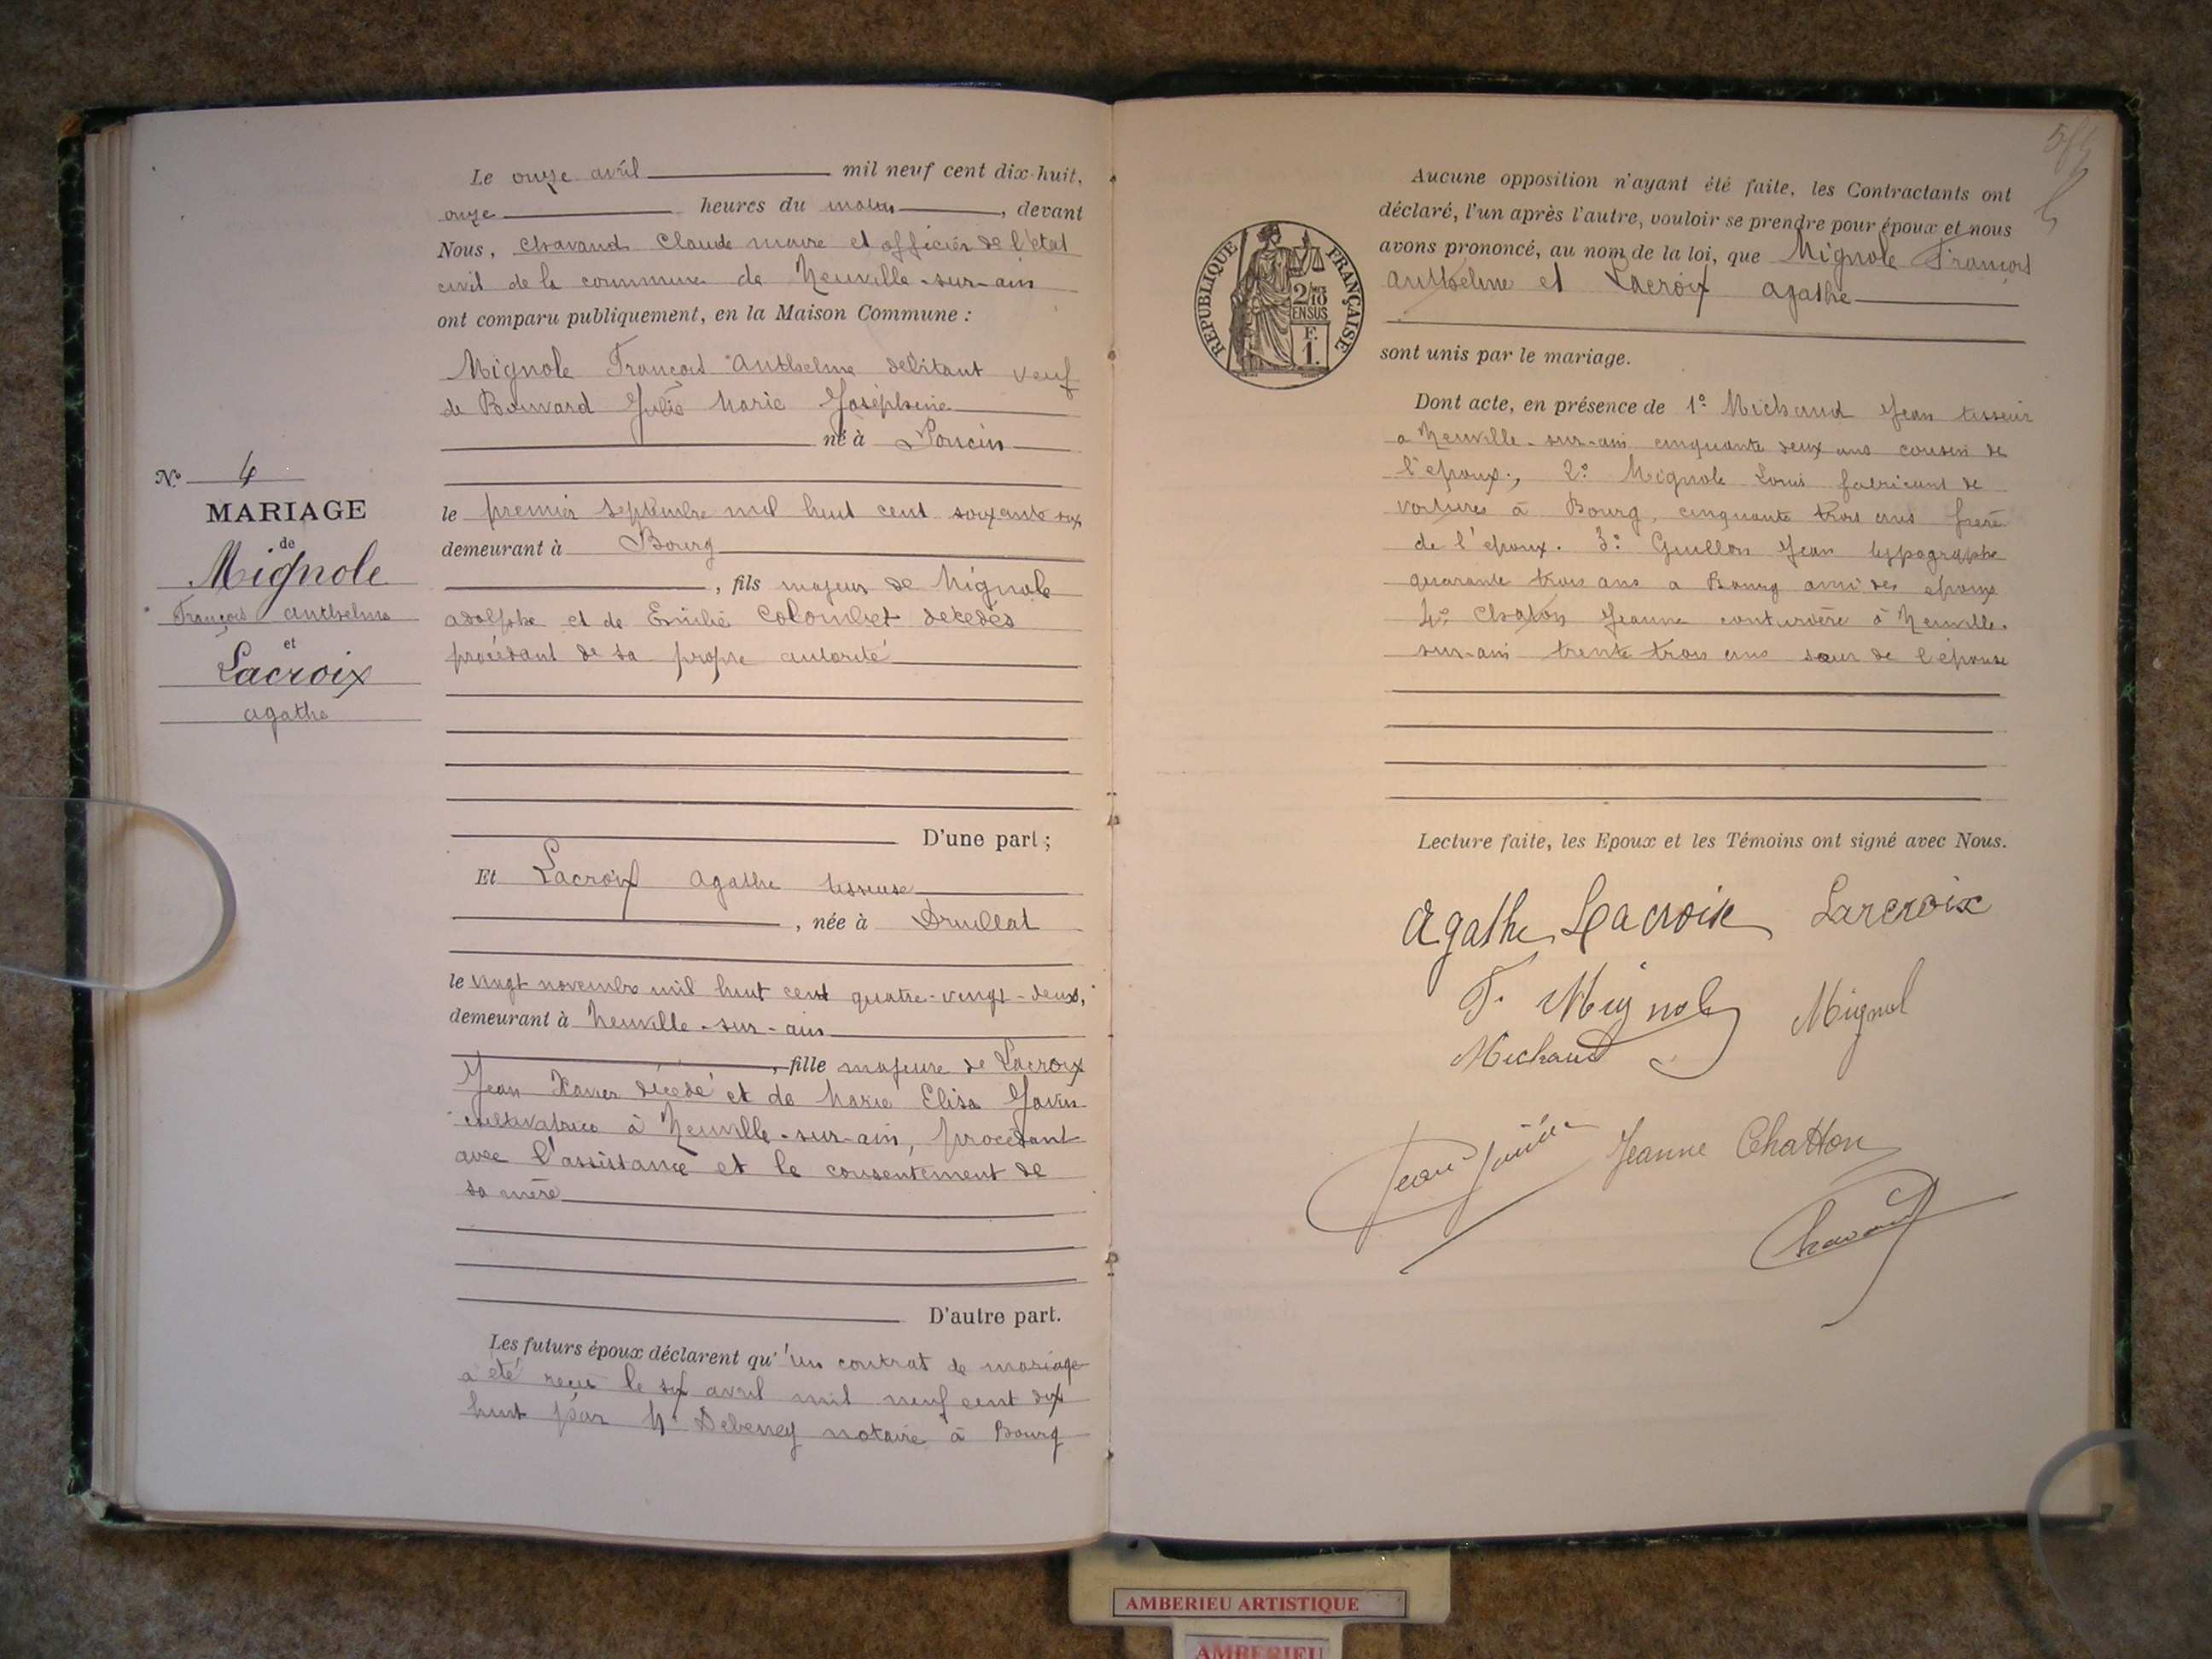 Le onze avril mil neuf cent dix-huit,
onze heures du matin, devant
Nous, Chavand Claude maire et officier de l'etat
civil de la commune de Neuville-sur-ain
ont comparu publiquement, en la Maison Commune :
Mignole François Anthelme debitant veuf
de Bouvard Julie Marie Joséphine
né à Poncin
N° 4
MARIAGE
de
Mignole
François Anthelme
et
Lacroix
agathe
le premier septembre mil huit cent soixante six
demeurant à Bourg
, fils majeur de Mignole
adolphe et de Emilie Colombet decedés
procédant de sa propre autorité
D'une part ;
Et Lacroix agathe tisseuse
, née à Druillat
le vingt novembre mil huit cent quatre-vingt-deux,
demeurant à Neuville-sur-ain
, fille majeure de Lacroix
Jean Xavier décédé et de Marie Elisa
cultivatrice à Neuville-sur-ain, procédant
avec l'assistance et le consentement de
sa mère
D'autre part.
Les futurs époux déclarent qu'un contrat de mariage
a été reçu le six avril mil neuf cent dix
huit par Me Debeney notaire à Bourg
Aucune opposition n'ayant été faite, les Contractants ont
déclaré, l'un après l'autre, vouloir se prendre pour époux et nous
avons prononcé, au nom de la loi, que Mignole François
Anthelme et Lacroix agathe
sont unis par le mariage.
RÉPUBLIQUE FRANÇAISE
2/10
EN SUS
F.
1.
Dont acte, en présence de 1° Michaud Jean tisseur
a Neuville-sur-ain cinquante deux ans cousin de
l'epoux, 2° Mignole Louis fabricant de
voitures à Bourg, cinquante trois ans frère
de l'epoux. 3° Jean typographe
quarante trois ans a Bourg ami des epoux
4° Chaton Jeanne couturière à Neuville-
sur-ain trente trois ans sœur de l'épouse
Lecture faite, les Epoux et les Témoins ont signé avec Nous.
Agathe Lacroix Larcroix
F. Mignole Mignol
Michaud
Jean Jeanne Chatton
Chavand
AMBERIEU ARTISTIQUE
AMBERIEU